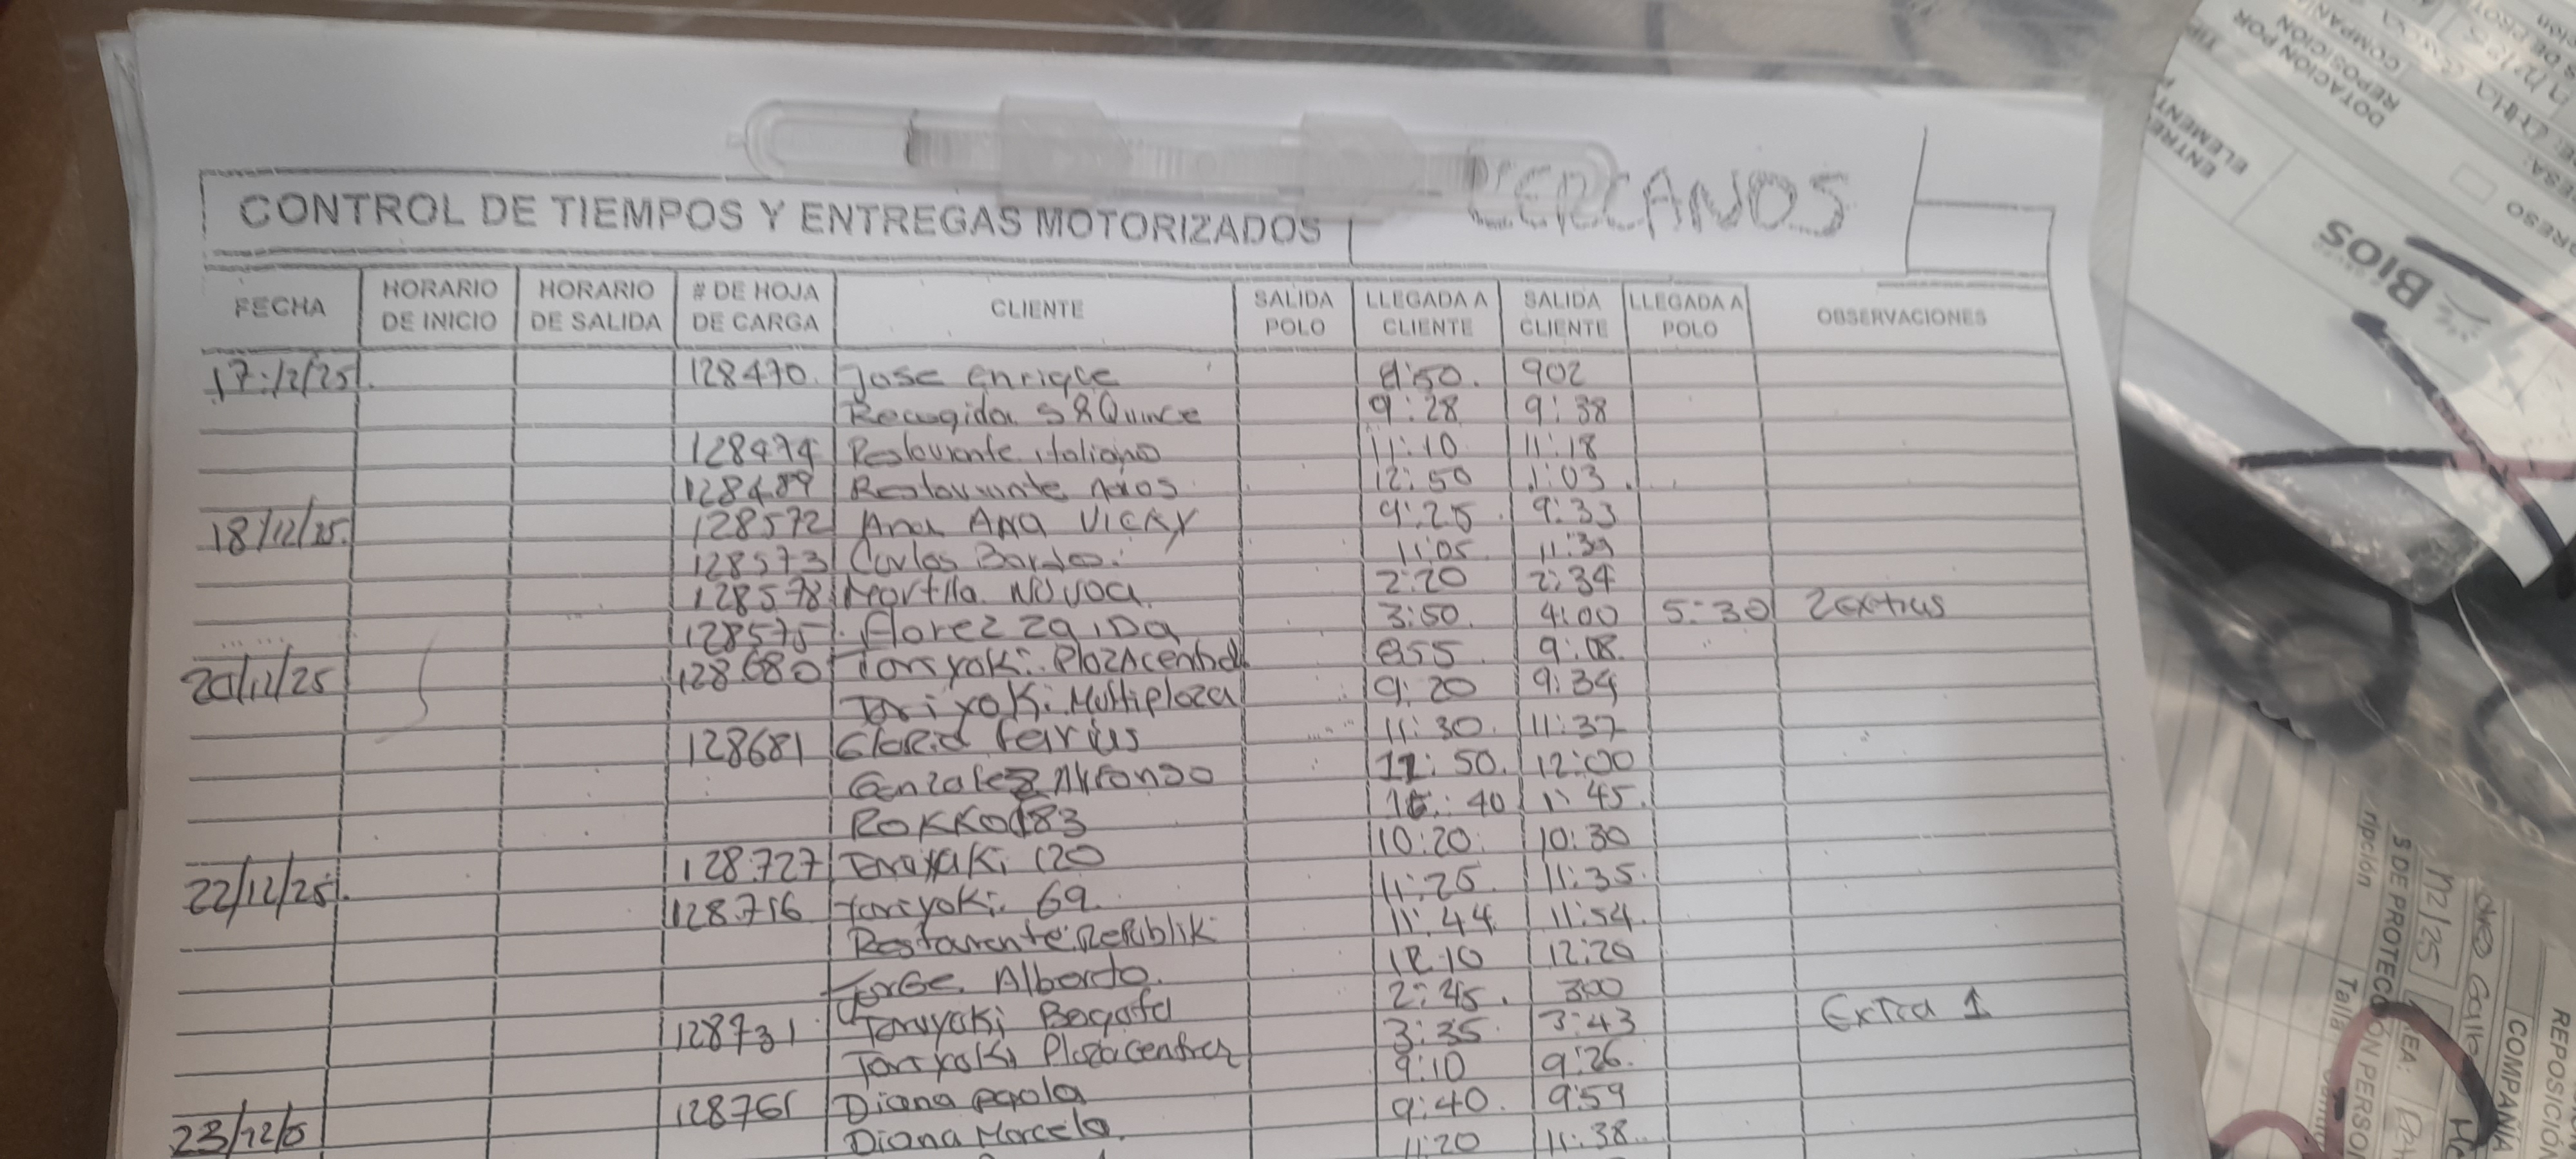 CONTROL DE TIEMPOS Y ENTREGAS MOTORIZADOS CERCANOS
FECHA HORARIO DE INICIO HORARIO DE SALIDA # DE HOJA DE CARGA CLIENTE SALIDA POLO LLEGADA A CLIENTE SALIDA CLIENTE LLEGADA A POLO OBSERVACIONES
17/12/25. 128470. Jose enrique 8:50. 902
Recogida S&Quince 9:28 9:38
128474 Restaurante italiano 11:10 11:18
128489 Restaurante 12:50 1:03.
18/12/25. 128572 Ana ANA VICKY 9:25 9:33
128573 Carlos 11:05 11:39
128578 Martha. NOVOA. 2:20 2:34
128575. Florez ZaiDa 3:50. 4:00 5:30 2 extras
20/12/25 128680 Toriyoki. PlozAcentral 855 9:08.
Toriyoki. Multiploza 9:20 9:34
128681 Gloria farias 11:30. 11:37
Gonzalez Alfonso 11:50. 12:00
ROKKO183 40 1:45.
22/12/25. 128.727 Toriyaki 120 10:20. 10:30
128.716 toriyoki. 69. 11:25. 11:35.
Restarante. Republik 11:44 11:54.
JorGe. Alberto. 12:10 12:20
128731 Toriyaki Bogota 2:45. 300
Toriyoki Plozacentral 3:35. 3:43 Extra 1
23/12/5 128761 Diana paola 9:10 9:26.
Diana Marcela. 9:40. 9:59
11:20 11:38.
Bios
ENTRE
ELEMENT
DOTACION POR
REPOSICIÓN
COMPAÑI
S DE PROTECCIÓN PERSON
Talla
COMPAÑIA
REPOSICIÓ